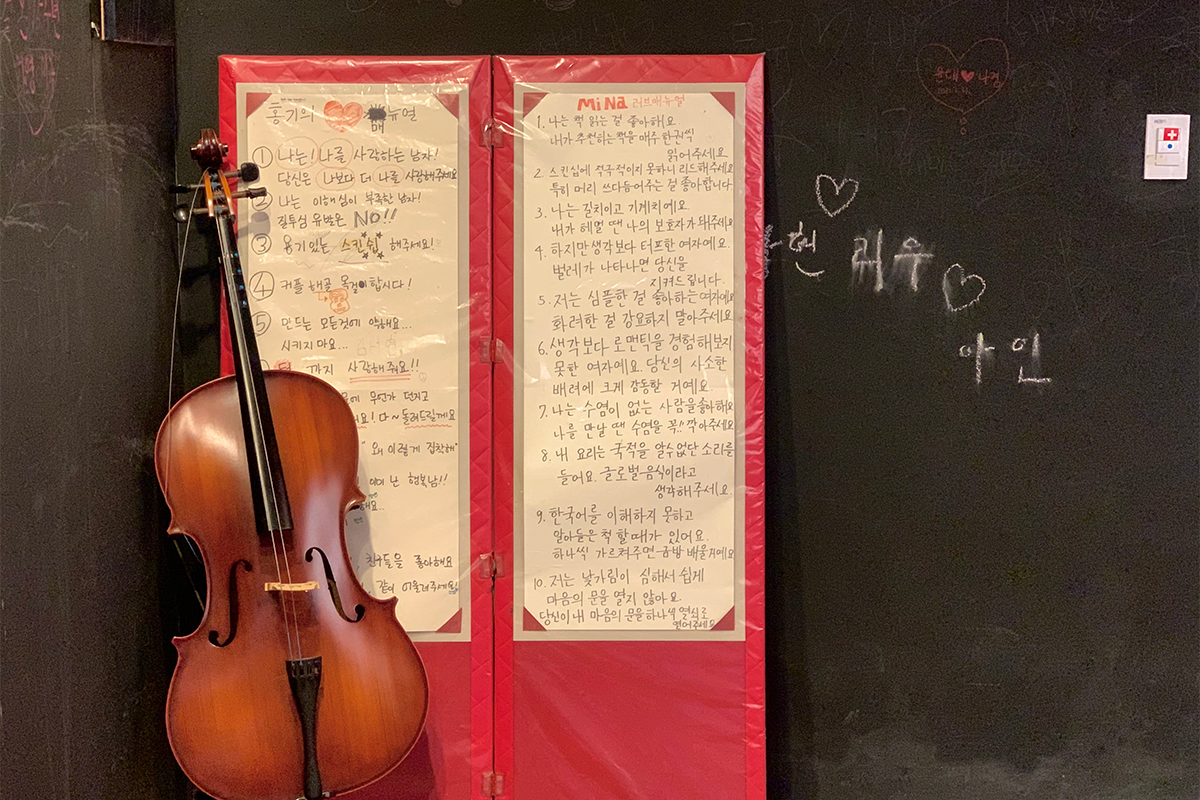 홍기의 매뉴얼
① 나는! 나를 사랑하는 남자!
당신은 나보다 더 나를 사랑해주세요
② 나는 이해심이 부족한 남자!
질투심 유발은 NO!!
③ 용기있는 스킨쉽 해주세요!
④ 커플 해골 목걸이 합시다!
⑤ 만드는 모든것에 약해요...
시키지 마요...
까지 사랑해줘요!!
에 무언가 던지고
다~ 돌려드릴게요
"왜 이렇게 집착해"
난 행복남!!
친구들을 좋아해요
같이 어울려주세요!
MiNa 러브매뉴얼
1. 나는 책 읽는 걸 좋아해요.
내가 추천하는 책을 매주 한권씩
읽어주세요
2. 스킨십에 적극적이지 못하니 리드해주세요
특히 머리 쓰다듬어주는 걸 좋아합니다
3. 나는 길치이고 기계치예요.
내가 헤멜 땐 나의 보호자가 돼주세요
4. 하지만 생각보다 터프한 여자예요.
벌레가 나타나면 당신을
지켜드립니다.
5. 저는 심플한 걸 좋아하는 여자예요
화려한 걸 강요하지 말아주세요
6. 생각보다 로맨틱을 경험해보지
못한 여자예요. 당신의 사소한
배려에 크게 감동할 거예요.
7. 나는 수염이 없는 사람을 좋아해요
나를 만날 땐 수염을 꼭!! 깍아주세요
8. 내 요리는 국적을 알수없단 소리를
들어요. 글로벌 음식이라고
생각해주세요.
9. 한국어를 이해하지 못하고
알아들은 척 할때가 있어요.
하나씩 가르쳐주면 금방 배울거예요
10. 저는 낯가림이 심해서 쉽게
마음의 문을 열지 않아요.
당신이 내 마음의 문을 하나씩 열쇠로
열어주세요
용대 ♥ 나경
러우
아인